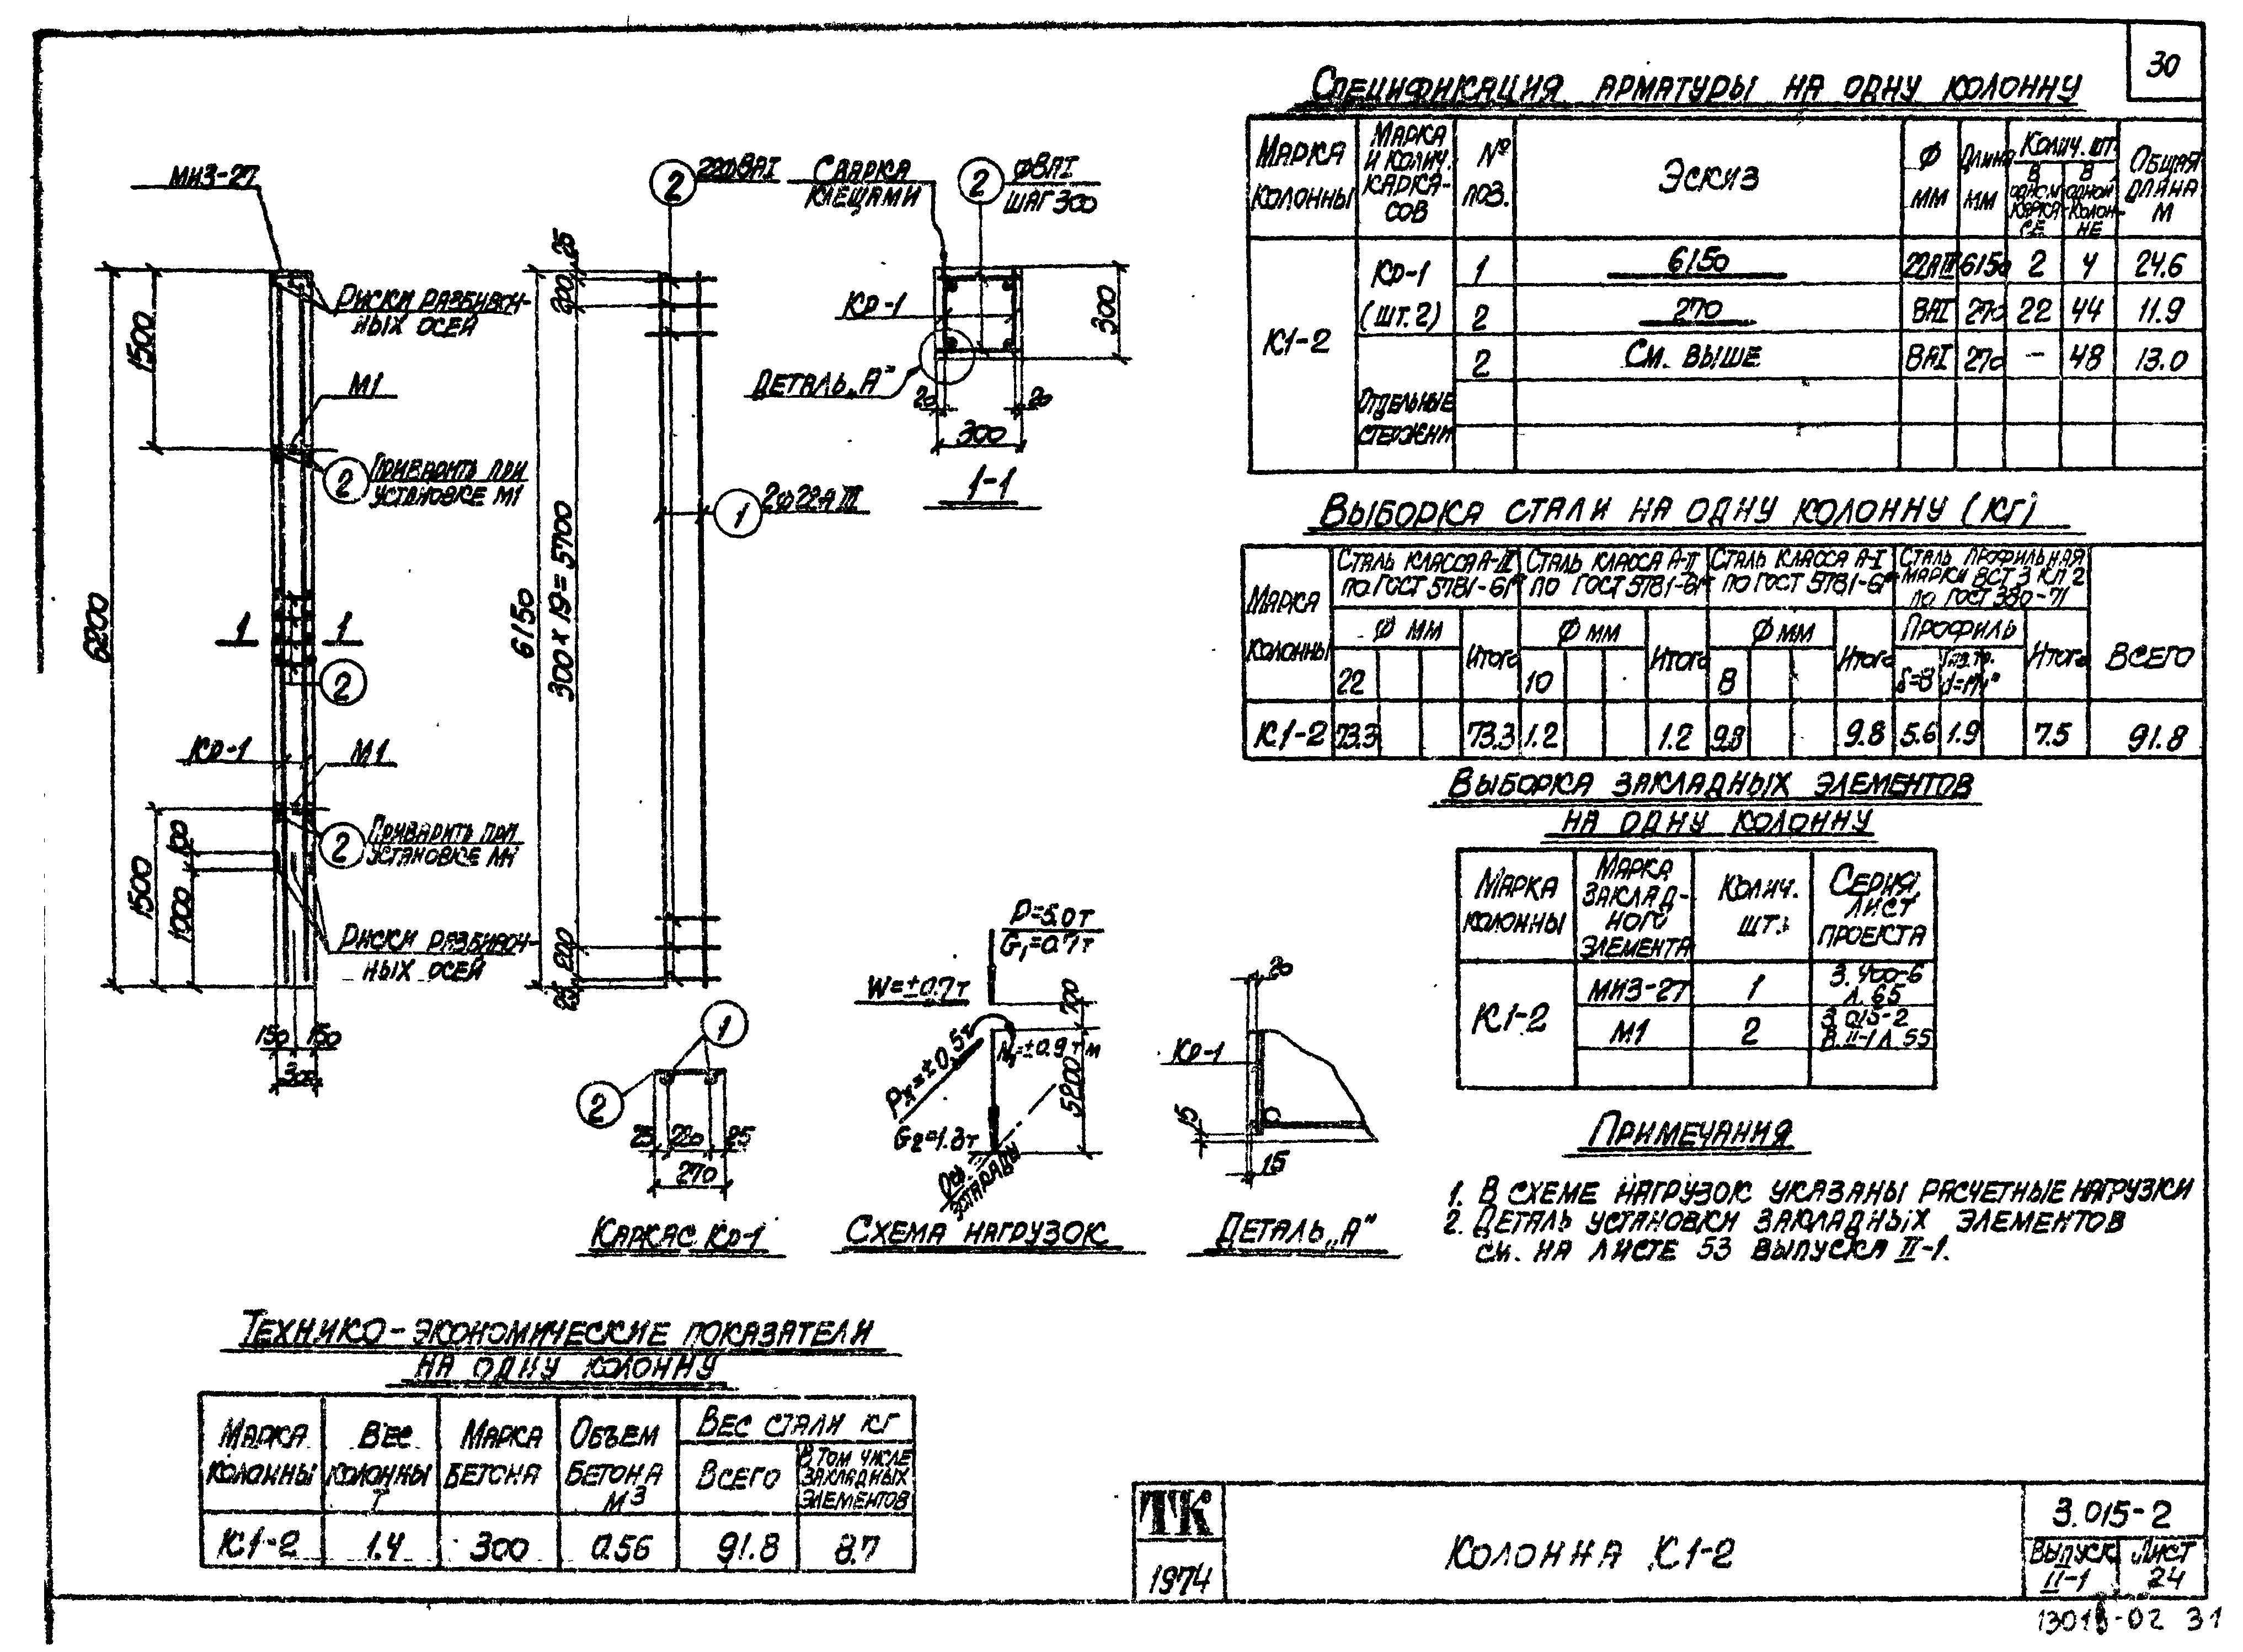 30
Спецификация арматуры на одну колонну
Марка колонны
Марка и колич. каркасов
№ поз.
Эскиз
Ф мм
Длина мм
Колич. шт.
В одном каркасе
В одной колонне
Общая длина м
К1-2
Кр-1 (шт. 2)
1 6150 22АIII 6150 2 4 24.6
2 270 8АI 270 22 44 11.9
Отдельные стержни
2 См. выше 8АI 270 – 48 13.0
Выборка стали на одну колонну (кг)
Марка колонны
Сталь класса А-III по ГОСТ 5781-61*
Сталь класса А-II по ГОСТ 5781-61*
Сталь класса А-I по ГОСТ 5781-61*
Сталь профильная марки ВСт 3 кп 2 по ГОСТ 380-71
Всего
Ф мм Итого Ф мм Итого Ф мм Итого Профиль Итого
22 10 8 δ=8
К1-2 73.3 73.3 1.2 1.2 9.8 9.8 5.6 1.9 7.5 91.8
Выборка закладных элементов
на одну колонну
Марка колонны
Марка закладного элемента
Колич. шт.
Серия, лист проекта
К1-2
МИЗ-27 1 3.400-6 л. 65
М1 2 3.015-2 В. II-1 л. 55
Примечания
1. В схеме нагрузок указаны расчетные нагрузки
2. Деталь установки закладных элементов
см. на листе 53 выпуска II-1.
МИЗ-27
Риски разбивоч-
ных осей
1500
М1
2 Приварить при
установке М1
6200
1 1
2
Кр-1
М1
2 Приварить при
установке М1
1500
100
1000
Риски разбивоч-
ных осей
150 150
300
2 22ф8АI
25
200
1 2ф22АIII
6150
300 х 19 = 5700
200
25
1
2
25 220 25
270
Каркас Кр-1
Сварка
клещами
2 ф8АI
шаг 300
Кр-1
300
Деталь „А"
20 20
300
1-1
P=5.0т
G₁=0.7т
W=±0.7т
700
Pх=±0.5т
=±0.9 т м
5200
G₂=1.3т
Ось
эстакады
Схема нагрузок
20
Кр-1
15
15
Деталь „А"
Технико-экономические показатели
на одну колонну
Марка колонны
Вес колонны т
Марка бетона
Объем бетона м3
Вес стали кг
Всего
В том числе закладных элементов
К1-2 1.4 300 0.56 91.8 8.7
ТК
1974
Колонна К1-2
3.015-2
Выпуск II-1
Лист 24
31